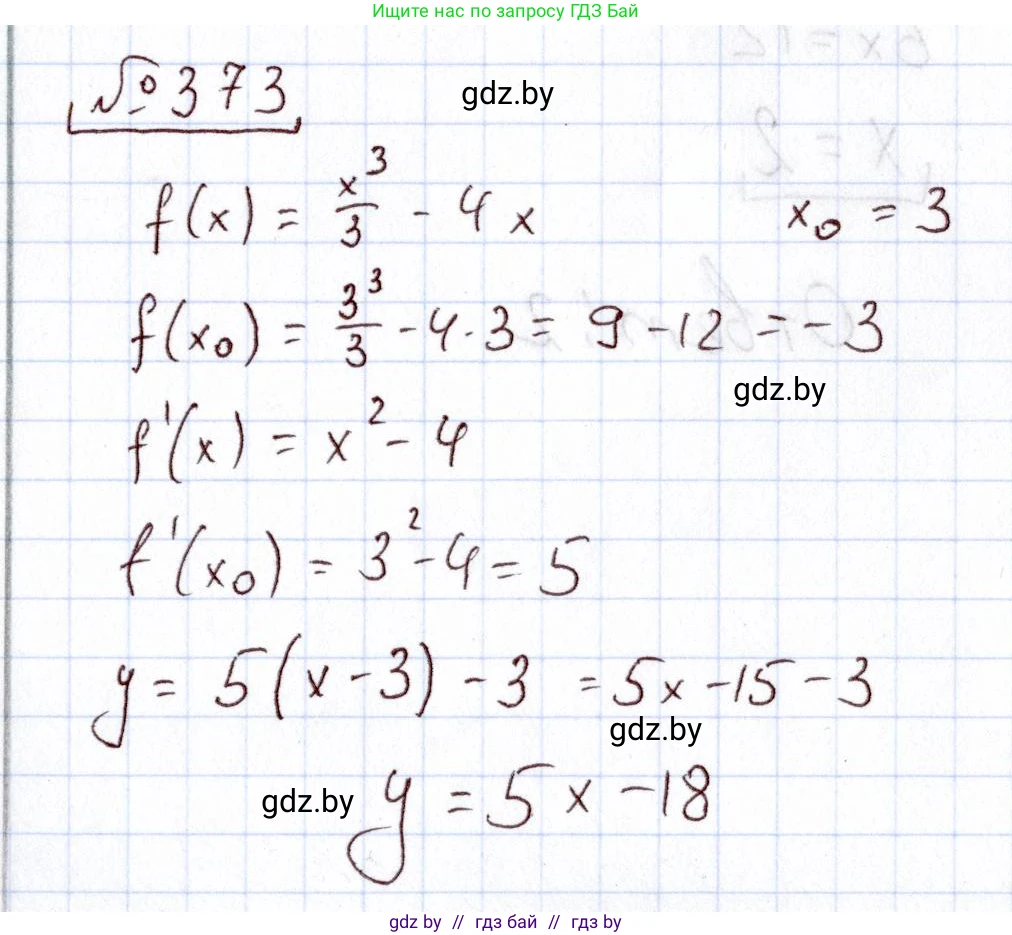 Ищите нас по запросу ГДЗ Бай
№ 373
gdz.by
f(x) = x³/3 - 4x    x₀ = 3
f(x₀) = 3³/3 - 4·3 = 9 - 12 = -3
gdz.by
f'(x) = x² - 4
f'(x₀) = 3² - 4 = 5
y = 5(x - 3) - 3 = 5x - 15 - 3
gdz.by
gdz.by
y = 5x - 18
gdz by // гдз бай // гдз by